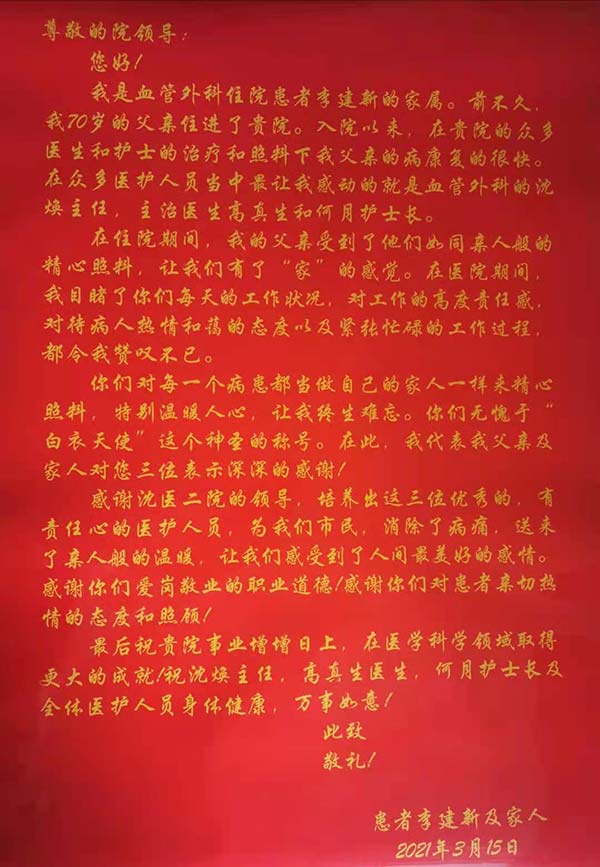 尊敬的院领导：
您好！
我是血管外科住院患者李建新的家属。前不久，
我70岁的父亲住进了贵院。入院以来，在贵院的众多
医生和护士的治疗和照料下我父亲的病康复的很快。
在众多医护人员当中最让我感动的就是血管外科的沈
焕主任，主治医生高真生和何月护士长。
在住院期间，我的父亲受到了他们如同亲人般的
精心照料，让我们有了“家”的感觉。在医院期间，
我目睹了你们每天的工作状况，对工作的高度责任感，
对待病人热情和蔼的态度以及紧张忙碌的工作过程，
都令我赞叹不已。
你们对每一个病患都当做自己的家人一样来精心
照料，特别温暖人心，让我终生难忘。你们无愧于“
白衣天使”这个神圣的称号。在此，我代表我父亲及
家人对您三位表示深深的感谢！
感谢沈医二院的领导，培养出这三位优秀的，有
责任心的医护人员，为我们市民，消除了病痛，送来
了亲人般的温暖，让我们感受到了人间最美好的感情。
感谢你们爱岗敬业的职业道德！感谢你们对患者亲切热
情的态度和照顾！
最后祝贵院事业增增日上，在医学科学领域取得
更大的成就！祝沈焕主任，高真生医生，何月护士长及
全体医护人员身体健康，万事如意！
此致
敬礼！
患者李建新及家人
2021年3月15日